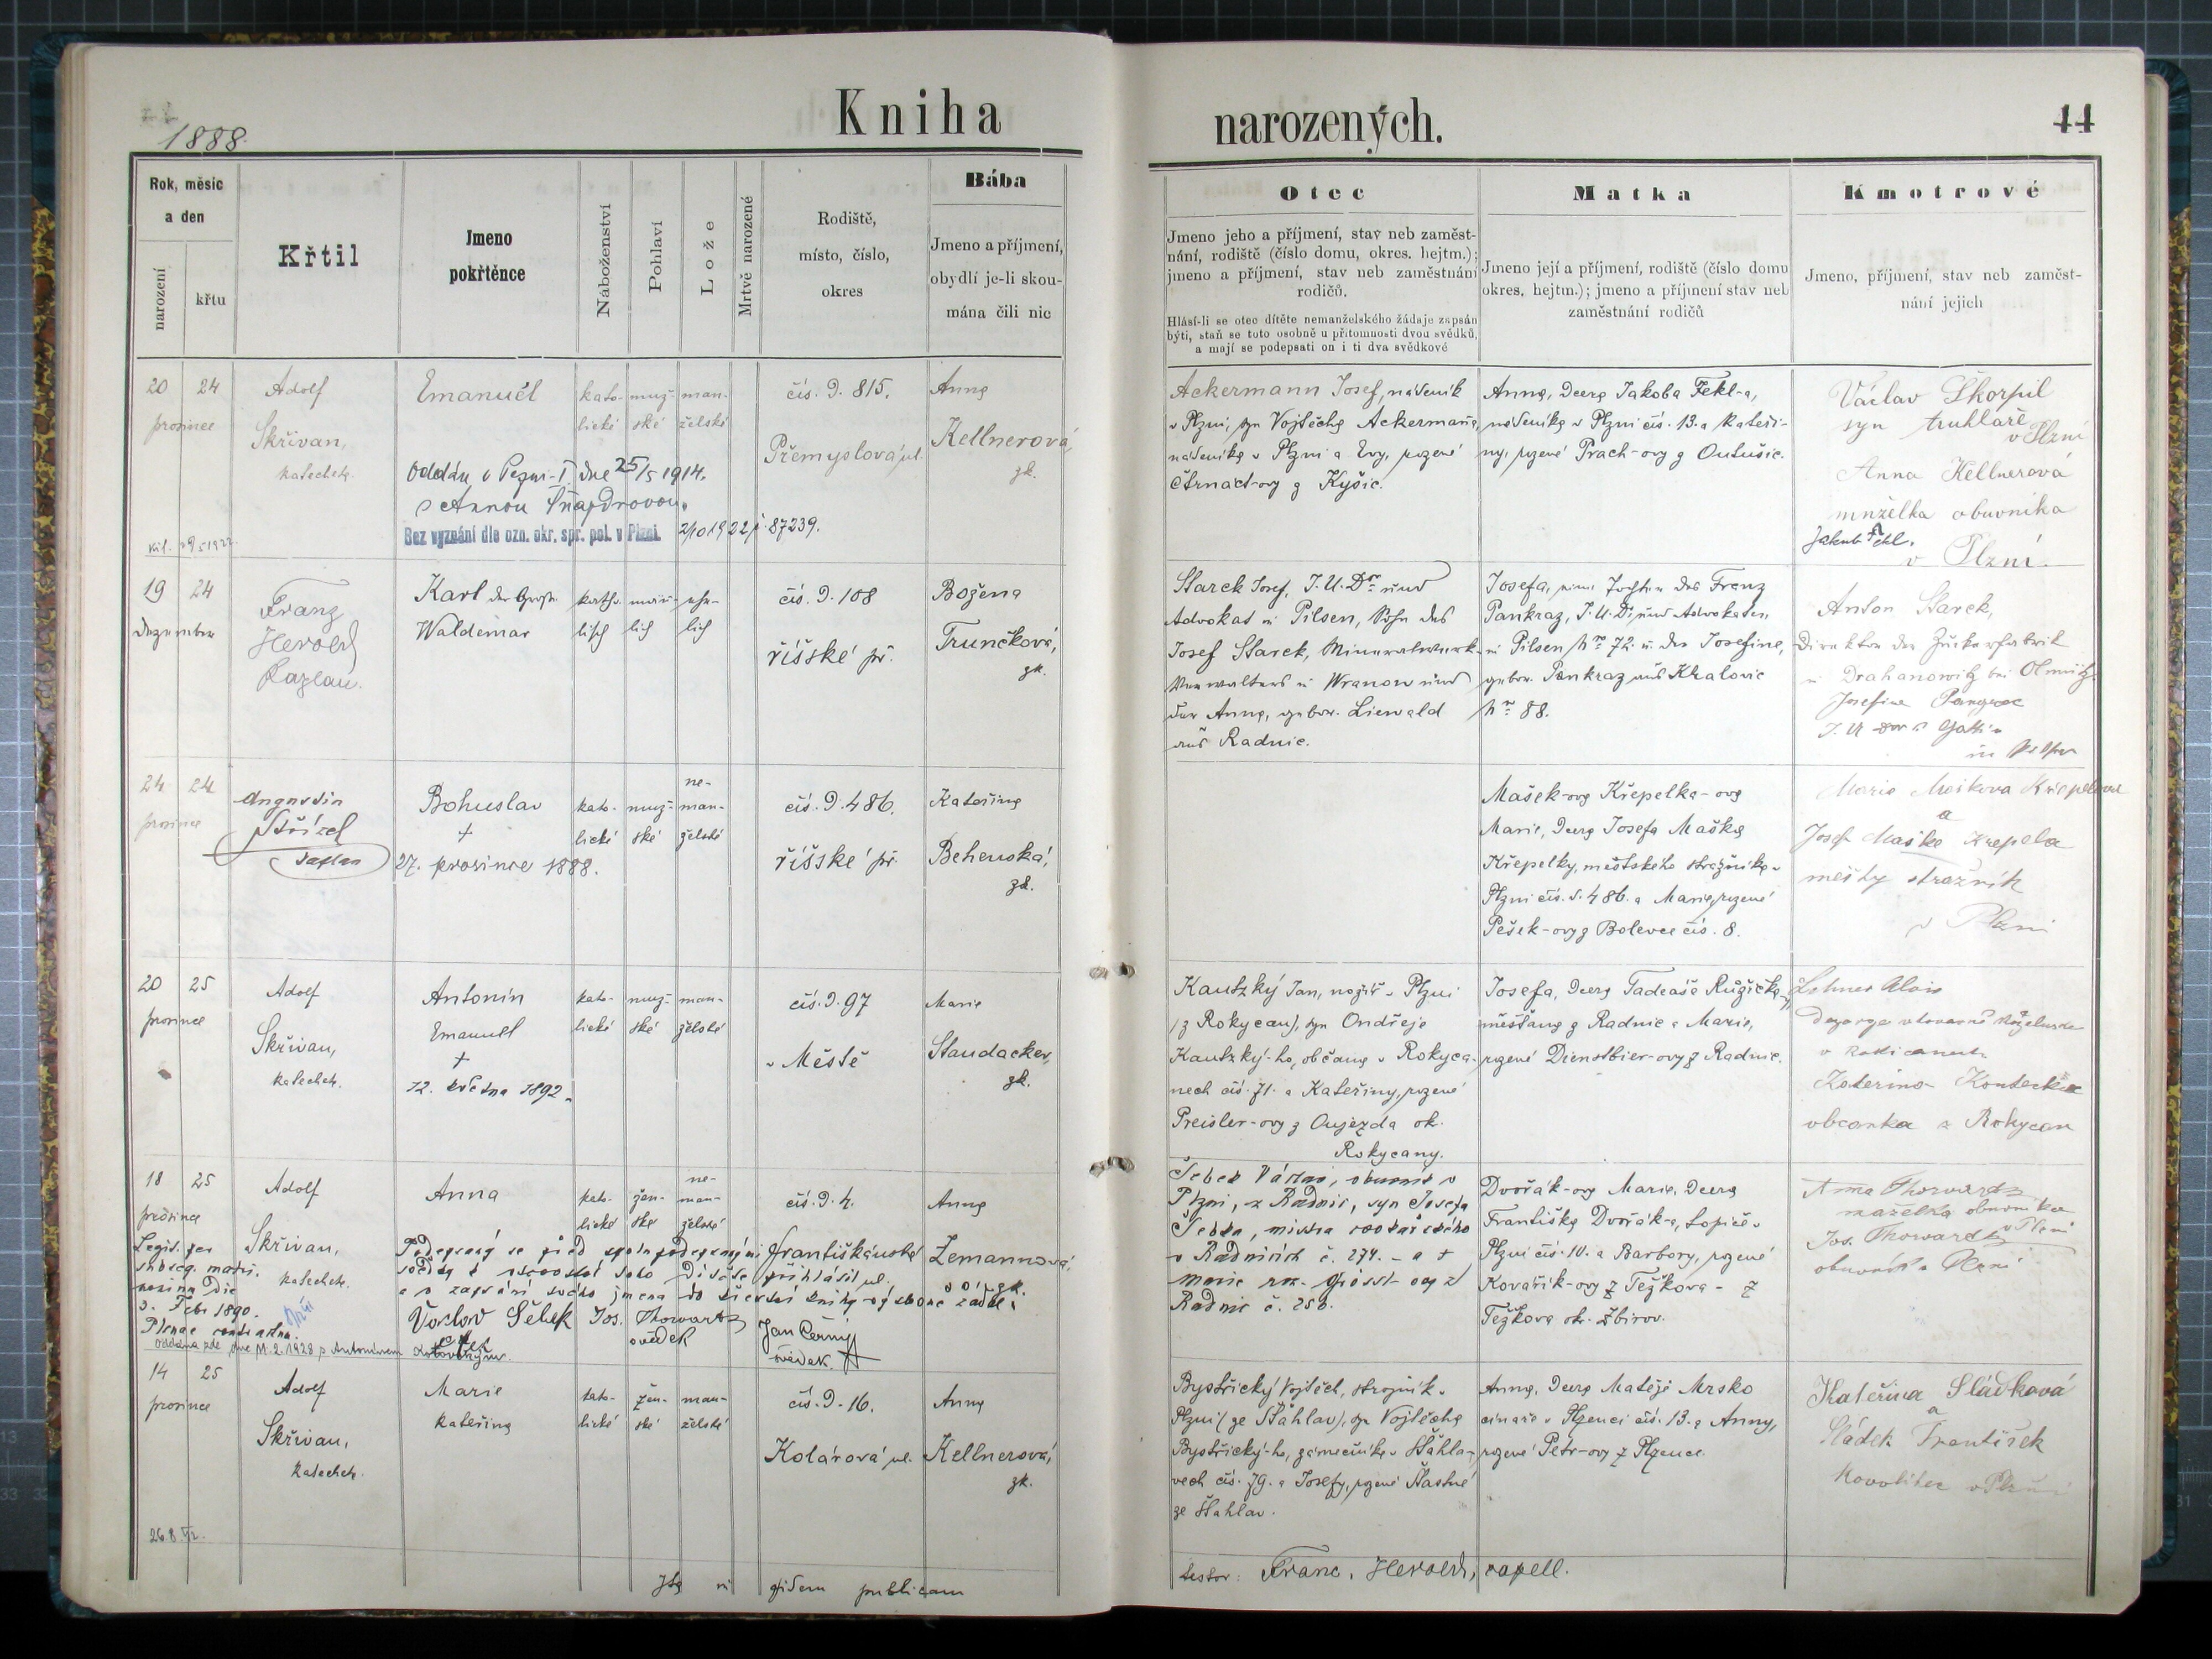 Kniha narozených.
44
1888.
Rok, měsíc a den
narození
křtu
Křtil
Jmeno pokřtěnce
Náboženství
Pohlaví
Lože
Mrtvě narozené
Rodiště, místo, číslo, okres
Bába
Jmeno a příjmení, obydlí je-li skoumána čili nic
Otec
Jmeno jeho a příjmení, stav neb zaměst-
nání, rodiště (číslo domu, okres. hejtm.);
jmeno a příjmení, stav neb zaměstnání
rodičů.
Hlásí-li se otec dítěte nemanželského žádaje zapsán
býti, staň se toto osobně u přítomnosti dvou svědků,
a mají se podepsati on i ti dva svědkové
Matka
Jmeno její a příjmení, rodiště (číslo domu
okres. hejtm.); jmeno a příjmení stav neb
zaměstnání rodičů
Kmotrové
Jmeno, příjmení, stav neb zaměst-
nání jejich
20 24
prosince
Adolf
Skřivan,
katechet.
Emanuel
Oddán v Pezni-I. dne 25/5 1914.
s Annou Šnajdrovou.
Bez vyznání dle ozn. okr. spr. pol. v Plzni. 2/10 1922 j. 87239.
kato-
lické
muž-
ské
man-
želské
čís. d. 815.
Přemyslova ul.
Anna
Kellnerová,
zk.
Ackermann Josef, nádeník
v Plzni, syn Vojtěcha Ackermanna,
nádeníka v Plzni a Evy, rozené
Čtrnact-ovy z Kyšic.
Anna, dcera Jakoba Fekl-a,
nádeníka v Plzni čís. 13. a Kateři-
ny, rozené Prach-ovy z Outušic.
Václav Škorpil
syn truhláře
v Plzni
Anna Kellnerová
manželka obuvníka
Jakub Fekl.
v Plzni.
19 24
Dezember
Franz
Herold
Kaplan.
Karl
Waldemar
katho-
lisch
männ-
lich
ehe-
lich
čís. d. 108
říšské př.
Božena
Trunčková,
zk.
Starck Josef, J. U. Dr. und
Advokat in Pilsen, Sohn des
Josef Starck, Mineralwerk-
Verwalters in Wranow und
der Anna, gebor. Liewald
aus Radnic.
Josefa, eine Tochter des Franz
Pankraz, J. U. Dr. und Advokaten,
in Pilsen Nro 72. u. der Josefine,
gebor. Pankraz aus Kralovic
Nro 88.
Anton Starck,
Direktor der Zuckerfabrik
in Drahanowitz bei Olmütz
Josefine Pangrac
J. U. Dors Gattin
in Pilsen
24 24
prosince
Augustin
Střízel
kaplan
Bohuslav
+
27. prosince 1888.
kato-
lické
muž-
ské
ne-
man-
želské
čís. d. 486.
říšské př.
Kateřina
Behenská,
zk.
Mašek-ova Křepelka-ova
Marie, dcera Josefa Maška
Křepelky, městského strážníka v
Plzni čís. d. 486. a Marie, rozené
Pešek-ovy z Bolevce čís. 8.
Marie Maškova Křepelova
a
Josef Maške Křepela
měsky stražník
v Plzni
20 25
prosince
Adolf
Skřivan,
katechet.
Antonín
Emanuel
+
12. května 1892.
kato-
lické
muž-
ské
man-
želské
čís. d. 97
v Městě
Marie
Staudacker,
zk.
Kautzký Jan, nožíř v Plzni
(z Rokycan), syn Ondřeje
Kautzký-ho, občana v Rokyca-
nech čís. 71. a Kateřiny, rozené
Preisler-ovy z Oujezda ok.
Rokycany.
Josefa, dcera Tadeáše Růžičky,
měšťana z Radnic a Marie,
rozené Dienstbier-ovy z Radnic.
Lehner Alois
v Rokicanech
Katerina Kontecka
obcanka z Rokycan
18 25
prosince
Legit. per
subseq. matri.
monium die
3. Febr 1890.
Adolf
Skřivan,
katechet.
Anna
kato-
lické
žen-
ské
ne-
man-
želské
čís. d. 4.
Františkánská
ul.
Anna
Zemannová,
zk.
Podepsaný se před spolu podepsanými
svědky k otcovství toto dítěte přihlásil
a o zapsání svého jmena do křestní knihy výslovně žádal:
Václav Šebek
Jos. Thowartz
svědek
Jan Černý
svědek.
Oddána zde dne 11. 2. 1928 s Antonínem
Šebek Václav, obuvník v
Plzni, z Radnic, syn Josefa
Šebka, mistra
v Radnicích č. 274. - a +
Marie roz. Grössl-ovy z
Radnic č. 256.
Dvořák-ova Marie, dcera
Františka Dvořák-a, topiče v
Plzni čís. 10. a Barbory, rozené
Kovařík-ovy z Težkova - z
Težkova ok. Zbirov.
Anna Thowartz
manželka obuvníka
v Plzni
Jos. Thowartz
obuvník v Plzni
14 25
prosince
26.8.
Adolf
Skřivan,
katechet.
Marie
Kateřina
kato-
lické
žen-
ské
man-
želské
čís. d. 16.
Kolárova ul.
Anna
Kellnerová,
zk.
Bystřický Vojtěch, strojník v
Plzni (ze Štáhlav), syn Vojtěcha
Bystřický-ho, zámečníka v Štáhla-
vech čís. 79. a Josefy, rozené Šťastné
ze Štahlav.
Anna, dcera Matěje Mrsko
cinaře v Plzenci čís. 13. a Anny,
rozené Petr-ovy z Plzence.
Kateřina Sládková
a
Sládek František
Kovolitec v Plzni
Ita in fidem publicam
testor: Franc. Herold, capell.